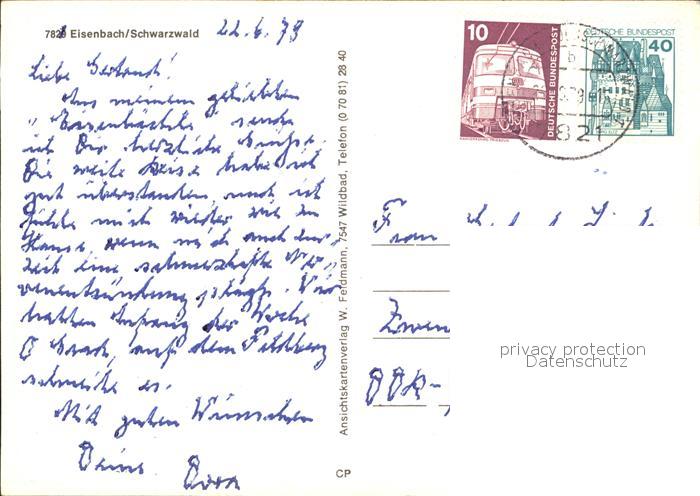 7829 Eisenbach/Schwarzwald
22.6.79
Liebe Gertraud!
Aus meinem geliebten
"Eisenbächle" sende
ich Dir herzliche Grüße.
Die weite Reise habe ich
gut überstanden, und ich
fühle mich wieder wie zu
Hause, wenn mich auch zur
Zeit eine schmerzhafte Ner-
venentzündung plagt. Wir
hatten Anfang der Woche
0 Grad, auf dem Feldberg
schneite es.
Mit guten Wünschen
Deine Dora
Ansichtskartenverlag W. Feldmann, 7547 Wildbad, Telefon (0 70 81) 28 40
CP
10
DEUTSCHE BUNDESPOST
DEUTSCHE BUNDESPOST
40
821
Frau
DDR-
privacy protection
Datenschutz